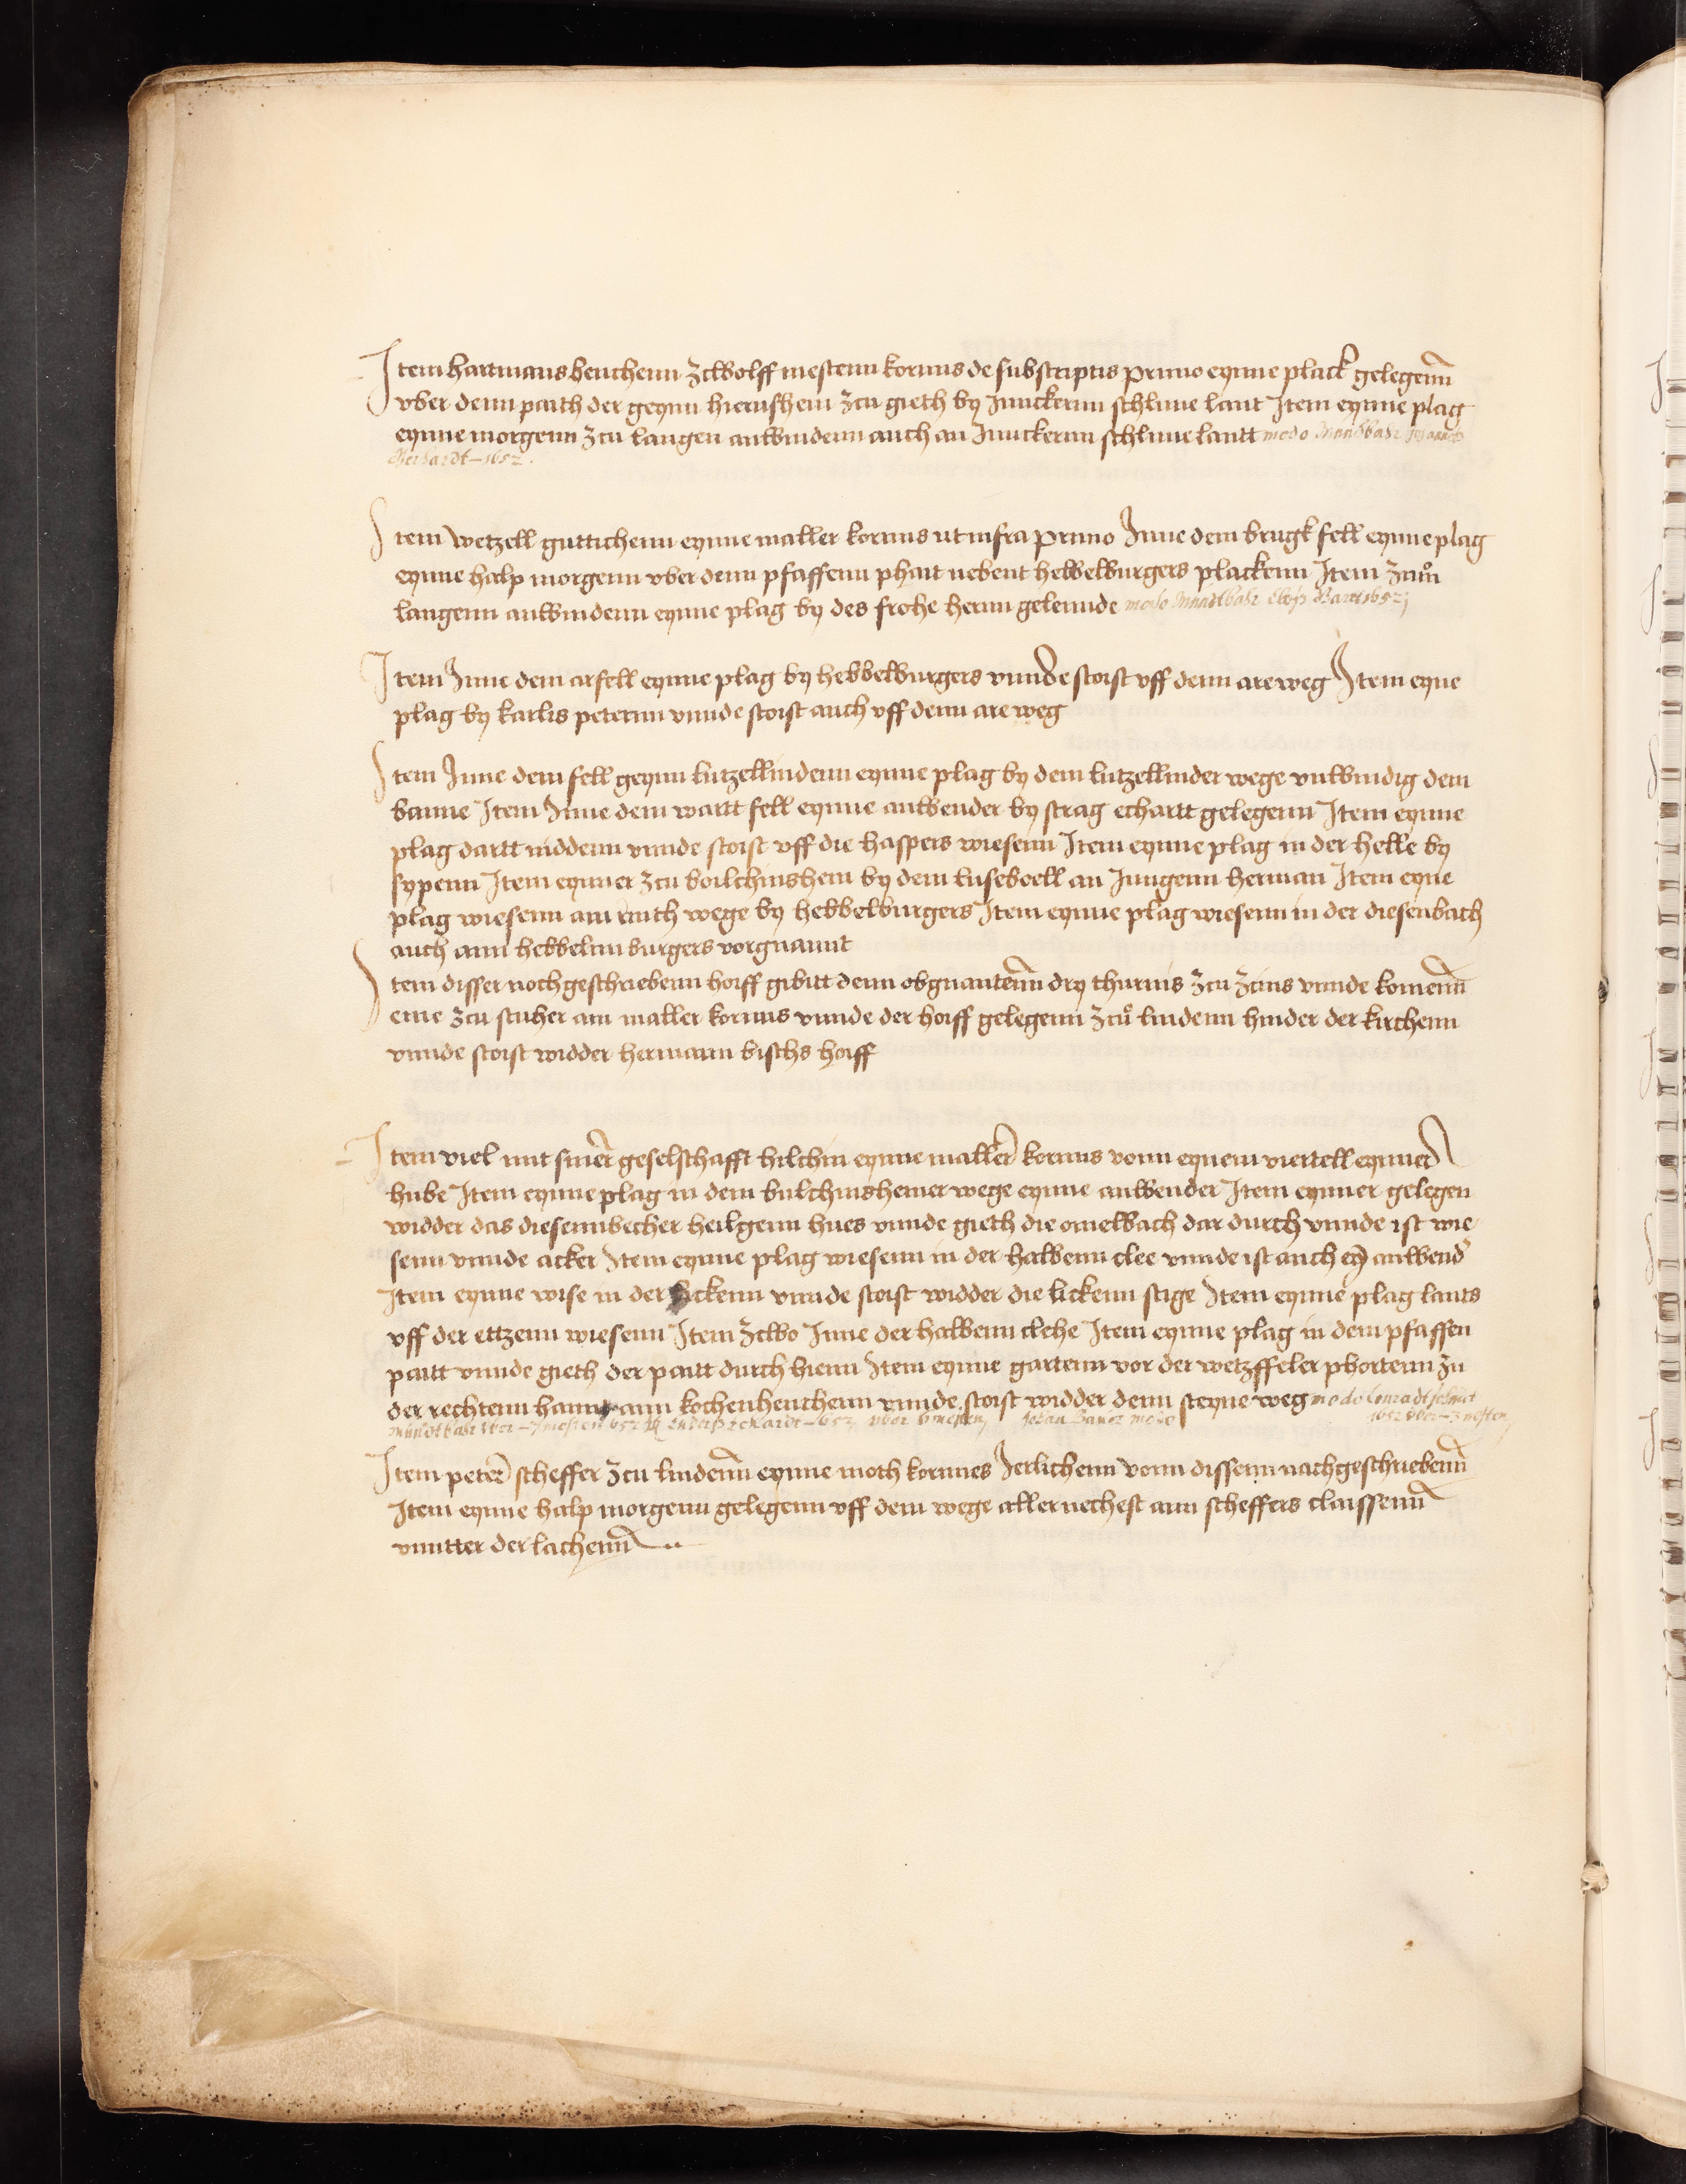 Item hartmans henchenn zcwolff mestenn kornns de subscriptis primo eynne plack gelegenn
vber denn paith der geynn hiernshem zcu gieth by Junckernn schlune lant Item eynne plag
eynne morgenn zcu langen anwindenn auch an Junckernn schlune lantt modo Innhbahr
Gerhardt – 1652.
Item Wetzell guttichenn eynne maller kornns ut infra primo Inne dem brugk fell eynne plag
eynne halp morgenn vber denn pfaffenn phait nebent hebbelburgers plackenn Item zcum
langenn anwindenn eynne plag by des frohe hernn gelennde modo Innhbahr 1652
Item Inne dem arfell eynne plag by hebbelburgers vnnde stoist vff denn areweg Item eyne
plag by karlis peternn vnnde stoist auch vff denn are weg
Item Inne dem fell geynn lutzellindenn eynne plag by dem lutzellinder wege vnwindig dem
banne Item Inne dem wartt fell eynne anwender by strag echartt gelegenn Item eynne
plag dartt niddenn vnnde stoist vff die haspers wiesenn Item eynne plag in der helle by
sypenn Item eynner zcu boilchinshem by dem luseboell an Jungenn herman Item eyne
plag wiesenn am ruith wege by hebbelburgers Item eynne plag wiesenn in der diesenbach
auch ann hebbelnn burgers vorgnannt
Item disser nochgeschriebenn hoiff gibitt denn obgnantenn dry thurnis zcu zcins vnnde komenn
eme zcu stuher am maller kornns vnnde der hoiff gelegenn zcu lindenn hinder der kirchenn
vnnde stoist widder hermann bischs hoiff
Item viel mit siner geselschafft hilchin eynne maller kornns vonn eynem viertell eynner
hube Item eynne plag in dem bulchinshemer wege eynne anwender Item eynner gelegen
widder das diesennbecher heilgenn hues vnnde gieth die omelbach dar durch vnnde ist wie
senn vnnde acker Item eynne plag wiesenn in der halbenn clee vnnde ist auch eyn anwend
Item eynne wise in der lickenn vnnde stoist widder die lickenn stige Item eynne plag lants
vff der ettzenn wiesenn Item zcwo Inne der halbenn clehe Item eynne plag in dem pfaffen
patt vnnde gieth der patt durch hienn Item eynne gartenn vor der wetzffeler phortenn zu
der rechtenn hannt ann kochenhenchenn vnnde stoist widder denn steyne weg modo Conradt
Eckardt – 1652 vber 6 mesten Johan Bauer modo 1652 vber – 3 mesten
Item peter scheffer zcu lindenn eynne moth kornnes Jerlichenn vonn dissenn nachgeschriebenn
Item eynne halp morgenn gelegenn vff dem wege aller nechest ann scheffers claissenn
vnntter der lachenn